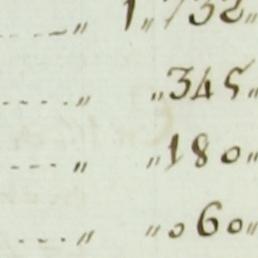 ---- „ 1„732„
.... „ „345„
---- „ „180„
.... „ „060„